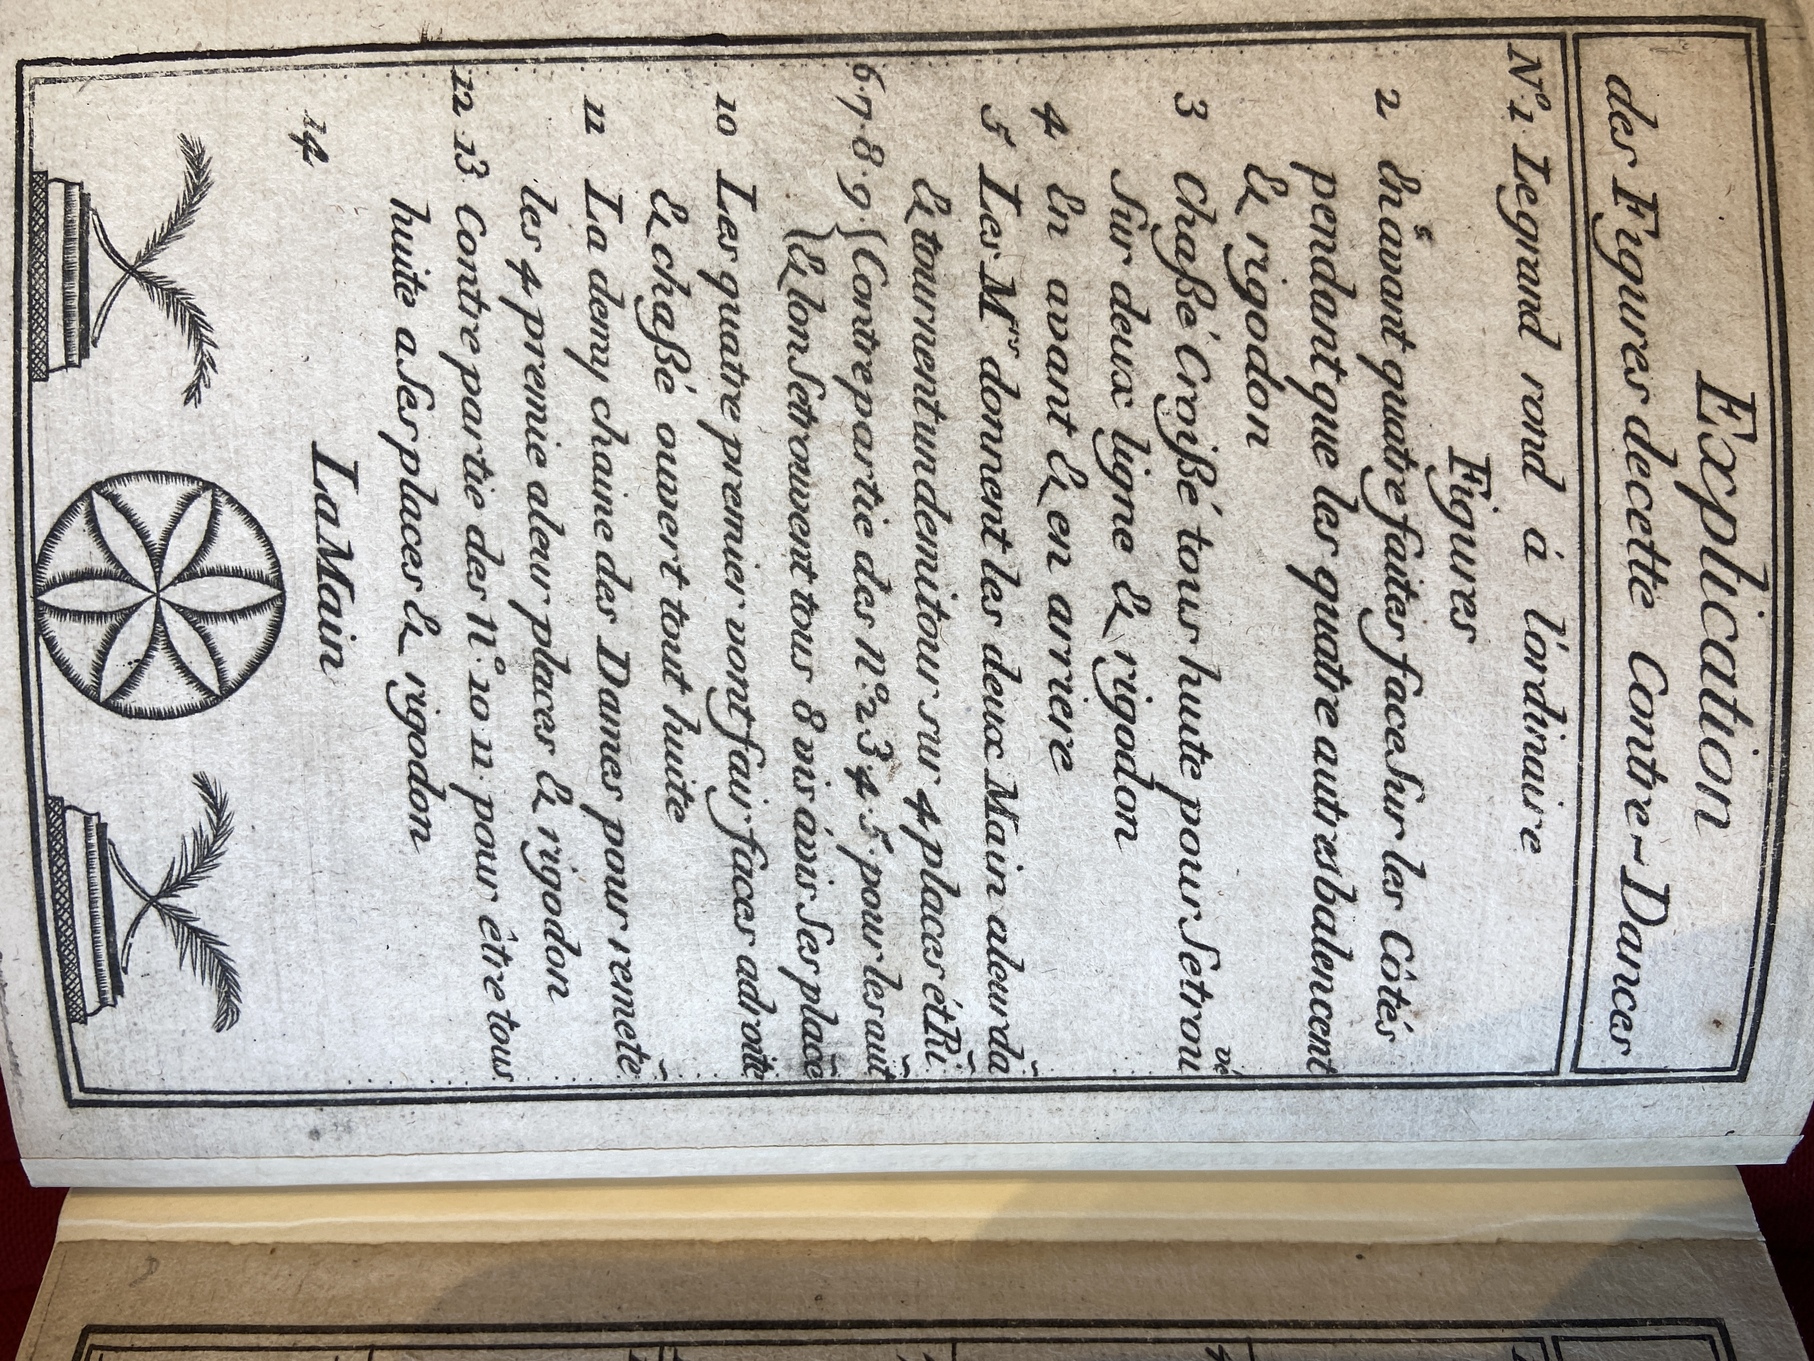 Explication
des Figures decette Contre-Dances
Nº. 1. Legrand rond à l'ordinaire
Figures
2 En avant quatre faites face sur les Côtés
pendant que les quatre autres balencent
& rigodon
3 Chaßé Croißé tous huite pour Se trou vé
Sur deux ligne & rigodon
4 En avant & en arriere
5 Les Mrs donnent les deux Main aleurda
& tournent un demi tour sur 4 places ét Ri.
6.7.8.9 { Contre partie des nº. 2 3 4. 5. pour les autt
{ & lon Se trouvent tous 8 vis àvis Ses place
10 Les quatre premier vont fair faces adroite
& chaßé ouvert tout huite
11 La demy chaine des Dames pour remete
les 4 premie aleur places & rigodon
12 13 Contre partie des nº. 10 11. pour être tous
huite a Ses places & rigodon
14 La Main